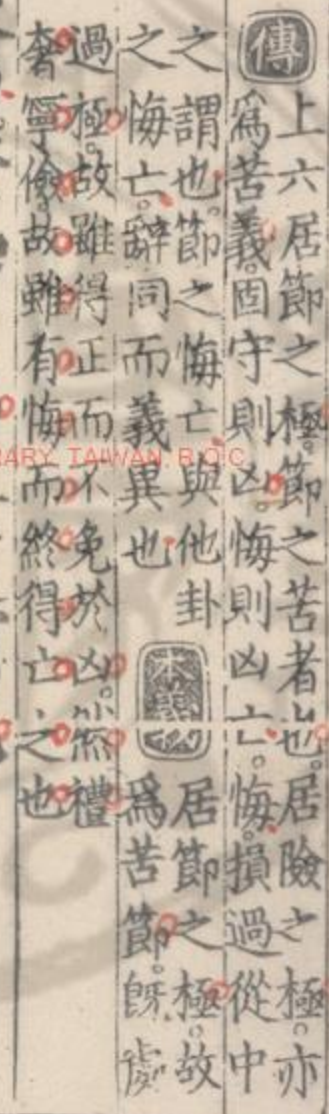 傳
上六居節之極。節之苦者也。居險之極。亦
爲苦義。固守則凶。悔則凶亡。悔。損過從中
之謂也。節之悔亡。與他卦
之悔亡。辭同而義異也
本義
居節之極。故
爲苦節。既處
過極。故雖得正而不免於凶。然禮
奢寧儉。故雖有悔而終得亡之也
ARY, TAIWAN. R.O.C